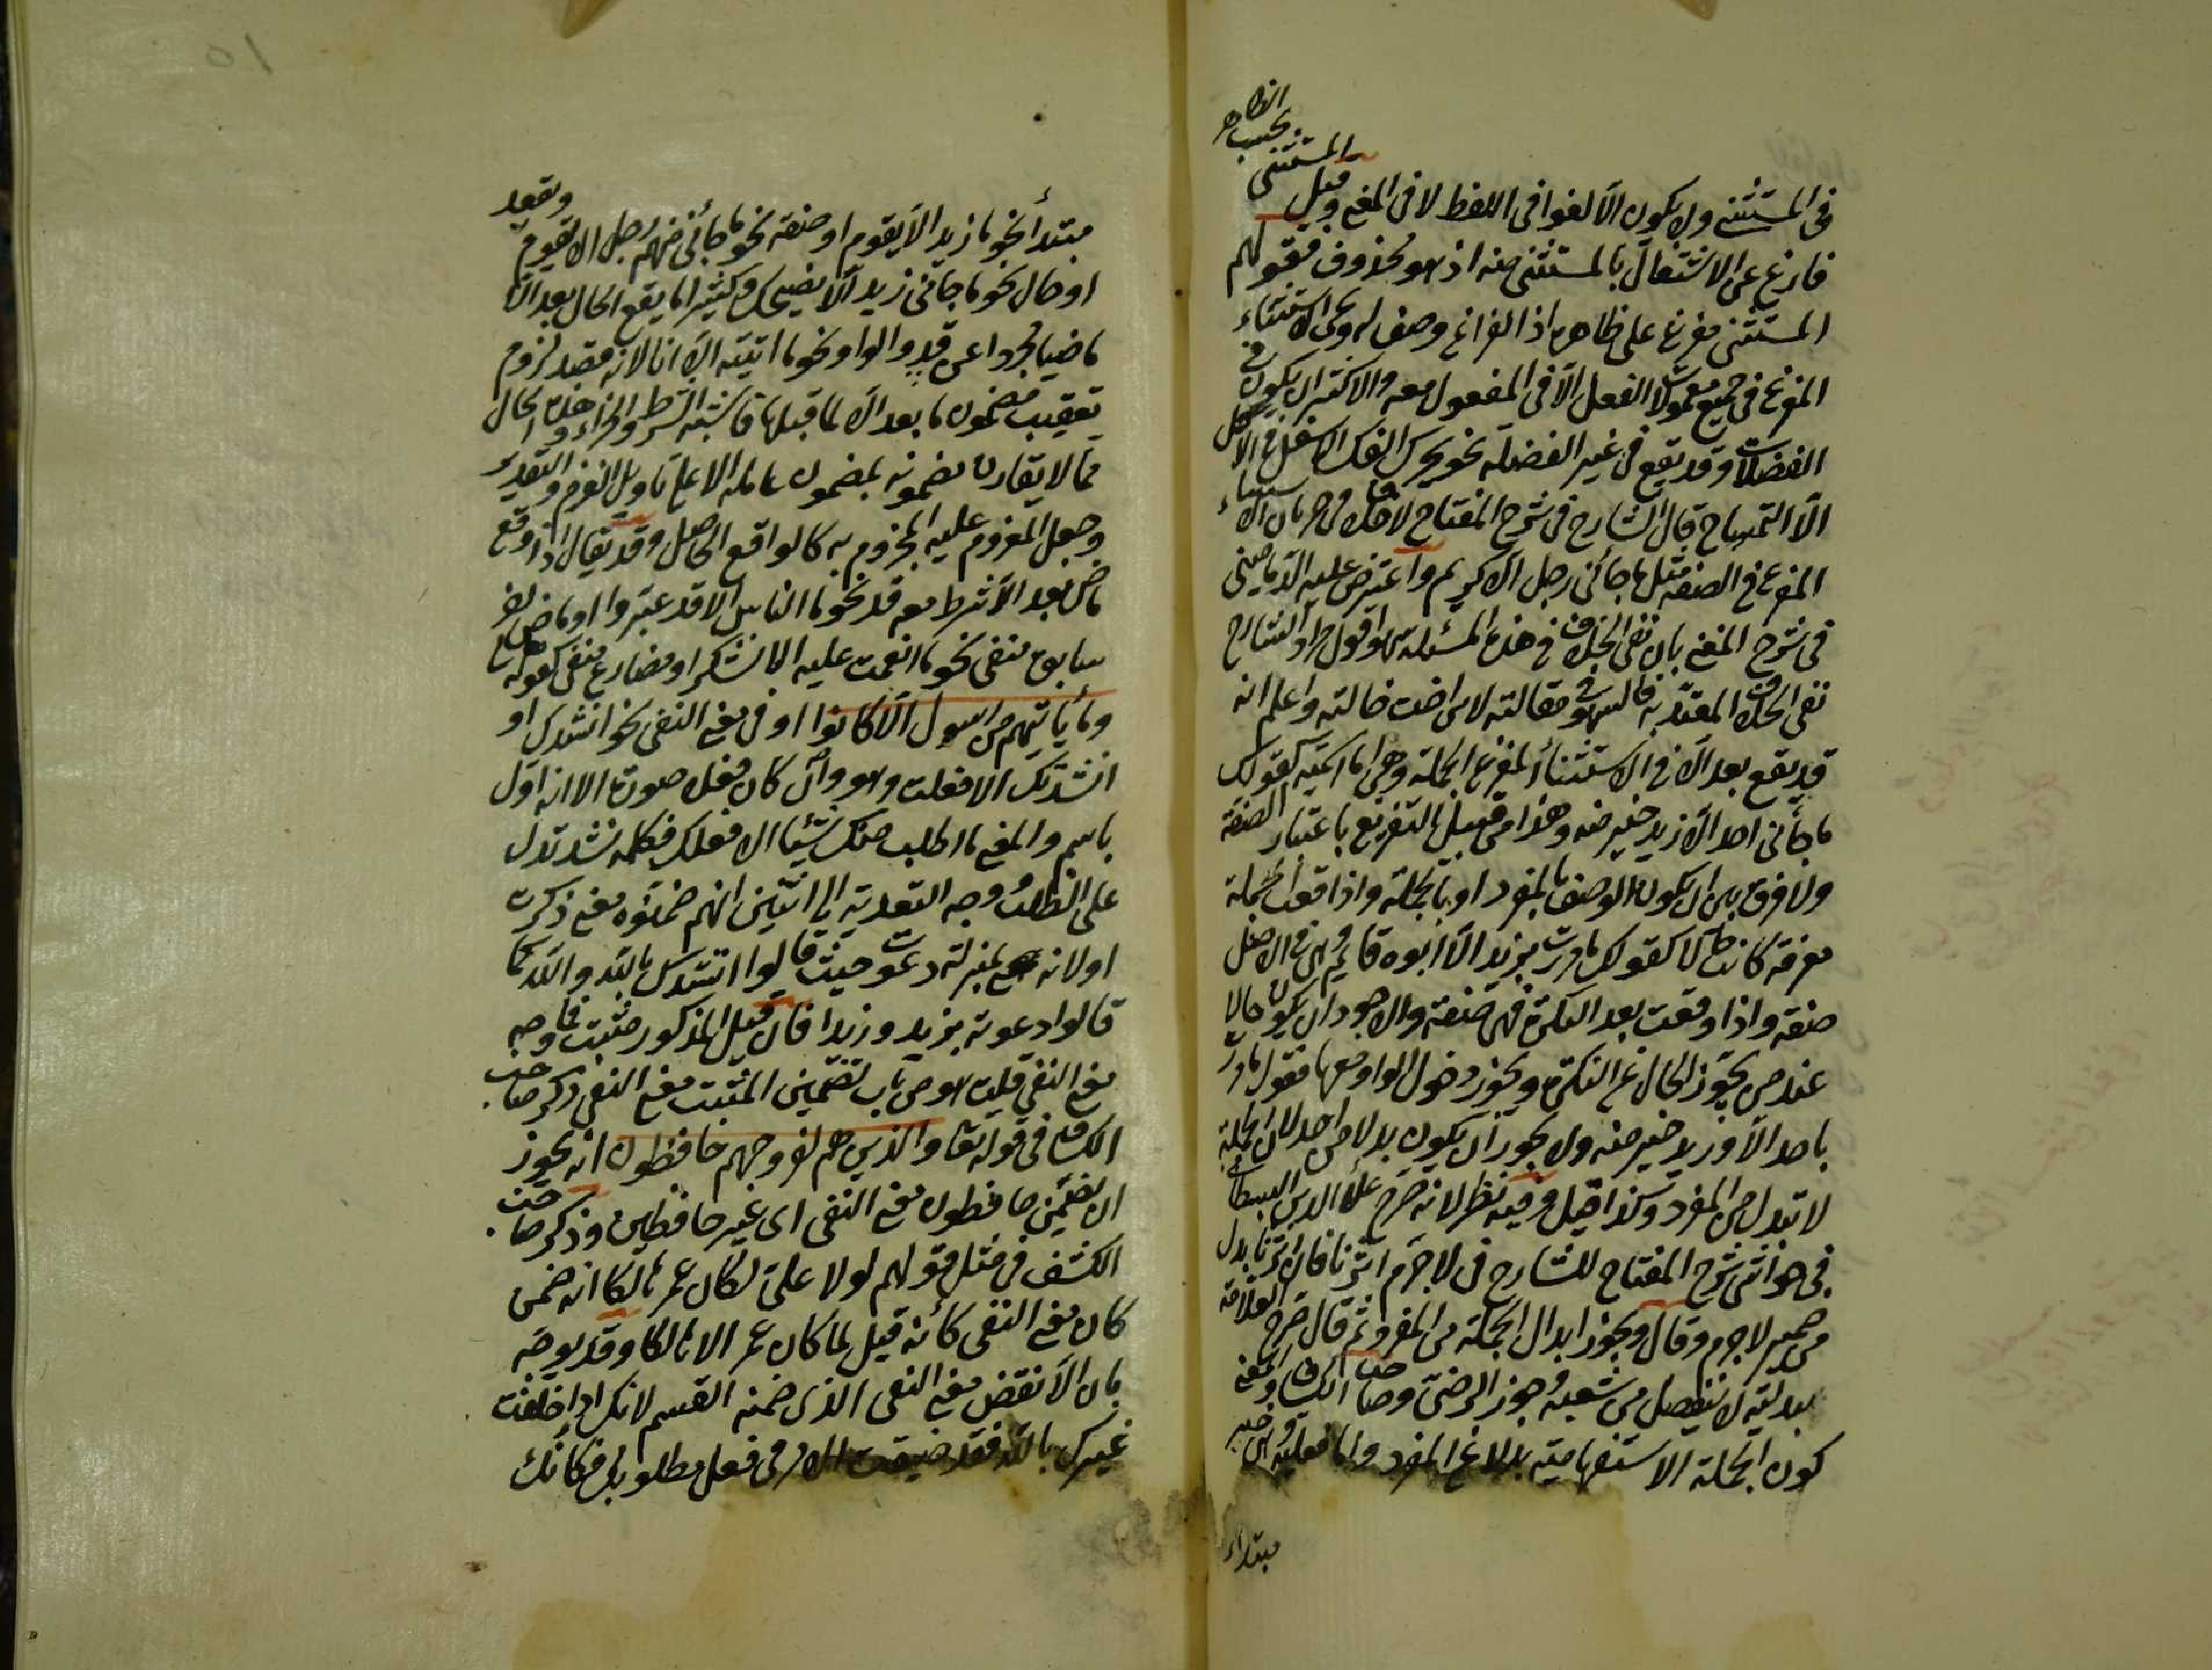 في المستثنى ولا يكون الا لغوا في اللفظ لا في المعنى وقيل المستثنى بحسب الظاهر
فارغ عن الاشتغال بالمستثنى منه اذ هو محذوف فقولهم
المستثنى مفرغ على ظاهره اذ الفراغ وصف له ويجئ الاستثناء
المفرغ في جميع معمولات الفعل الا في المفعول معه والاكثر ان يكون في
الفضلات وقد يقع في غير الفضلة نحو يحرك الفك الاسفل في الاكل
الا التمساح قال الشارح في شرح المفتاح لا خلاف في جريان الاستثناء
المفرغ في الصفة مثل ما جائني رجل الا كريم واعترض عليه الدماميني
في شرح المغني بان نفي الخلاف في هذه المسئلة سهو اقول مراد الشارح
نفي الخلاف المعتد به فالسهو في مقالته لا من اضت خالته واعلم انه
قد يقع بعد الا في الاستثناء المفرغ الجملة وهي اما اسمية كقولك
ما جائني احد الا زيد خير منه وهذا من قبيل التفريغ باعتبار الصفة
ولا فرق بين ان يكون الوصف بالمفرد او بالجملة واذا وقعت الجملة
معرفة كانت حالا كقولك ما مررت بزيد الا ابوه قائم وهي في الاصل
صفة واذا وقعت بعد النكرة فهي صفة والاجود ان يكون حالا
عند من يجوز الحال عن النكرة ويجوز دخول الواو معها فتقول ما مررت
باحد الا وزيد خير منه ولا يجوز ان يكون بدلا من احد لان الجملة
لا تبدل من المفرد وكذا قيل وفيه نظر لانه صرح علاء الدين البسطامي
في حواشي شرح المفتاح للشارح في لا جرم اثرنا فان اثرنا بدل
من ضمير لا جرم وقال ويجوز ابدال الجملة من المفرد ثم قال صرح العلامة
ببدليته لا تنفصل من شعبه وجوز الرضي وصاحب الكشاف والمغني
كون الجملة الاستفهامية بدلا عن المفرد واما فعلية وهي خبر
مبتداء
مبتدأ نحو ما زيد الا يقوم او صفة نحو ما جائني منهم رجل الا يقوم ويقعد
او حال نحو ما جائني زيد الا يضحك وكثيرا ما يقع الحال بعد الا
ماضيا مجردا عن قد والواو نحو ما اتيته الا اتاني لانه قصد لزوم
تعقيب مضمون ما بعد الا لما قبلها فاشبه الشرط والجزاء وهذه الحال
مما لا يقارن مضمونه بمضمون عامله الا على تأويل العزم والتقدير
وجعل المعزوم عليه المجزوم به كالواقع الحاصل وقد يقال اذا وقع
ماض بعد الا شرط معه قد نحو ما الناس الا قد عبروا او ماض لفظ
سابق منفي نحو ما انعمت عليه الا شكر او مضارع منفي كقوله تعالى
وما يأتيهم من رسول الا كانوا او في معنى النفي نحو انشدك او
انشدتك الا فعلت وهو وان كان فعلا صورة الا انه اول
باسم والمعنى ما اطلب منك شيئا الا فعلك فكلمه نشد تدل
على الطلب ووجه التعدية الى اثنين انهم ضمنوه معنى ذكرت
او لانه بمنزلة دعوت حيث قالوا انشدك بالله والله كما
قالوا دعوته بزيد وزيدا فان قيل المذكور مثبت فما وجه
معنى النفي قلت هو من باب تضمين المثبت معنى النفي ذكر صاحب
الكشاف في قوله تعا والذين هم لفروجهم حافظون انه يجوز
ان تضمين حافظون معنى النفي اى غير حافظين وذكر صاحب
الكشف في مثل قولهم لولا علي لكان عمر هالكا انه ضمن
كان معنى النفي كأنه قيل لما كان عمر الا هالكا وقد يوجه
بان الا نقض معنى النفي الذى ضمنه القسم لانك اذا حلفت
غيرك بالله فقد ضيقت الامر في فعل مطلوبك فكأنك
١٥